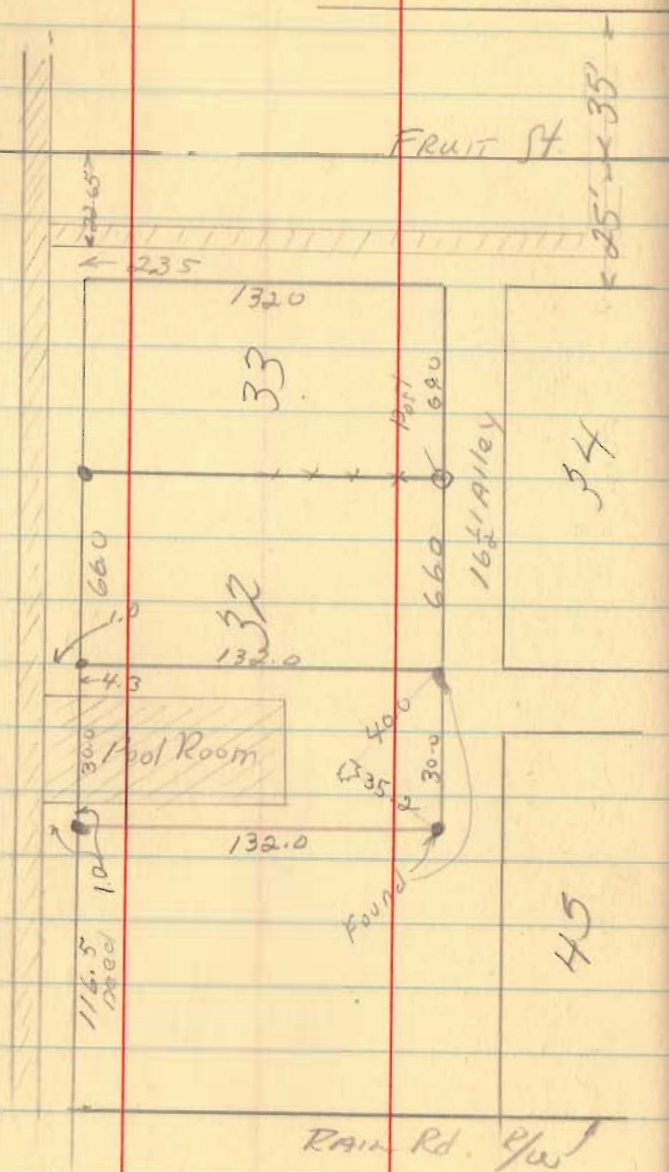 FRUIT St.
35'
25'
22.65
235
1320
33
Post
16½' Alley
34
660
660
1.0
32
132.0
4.3
30.0
Pool Room
40.0
35.2
30.0
132.0
1.0
Found
116.5
Deed
45
RAIL Rd. R/W